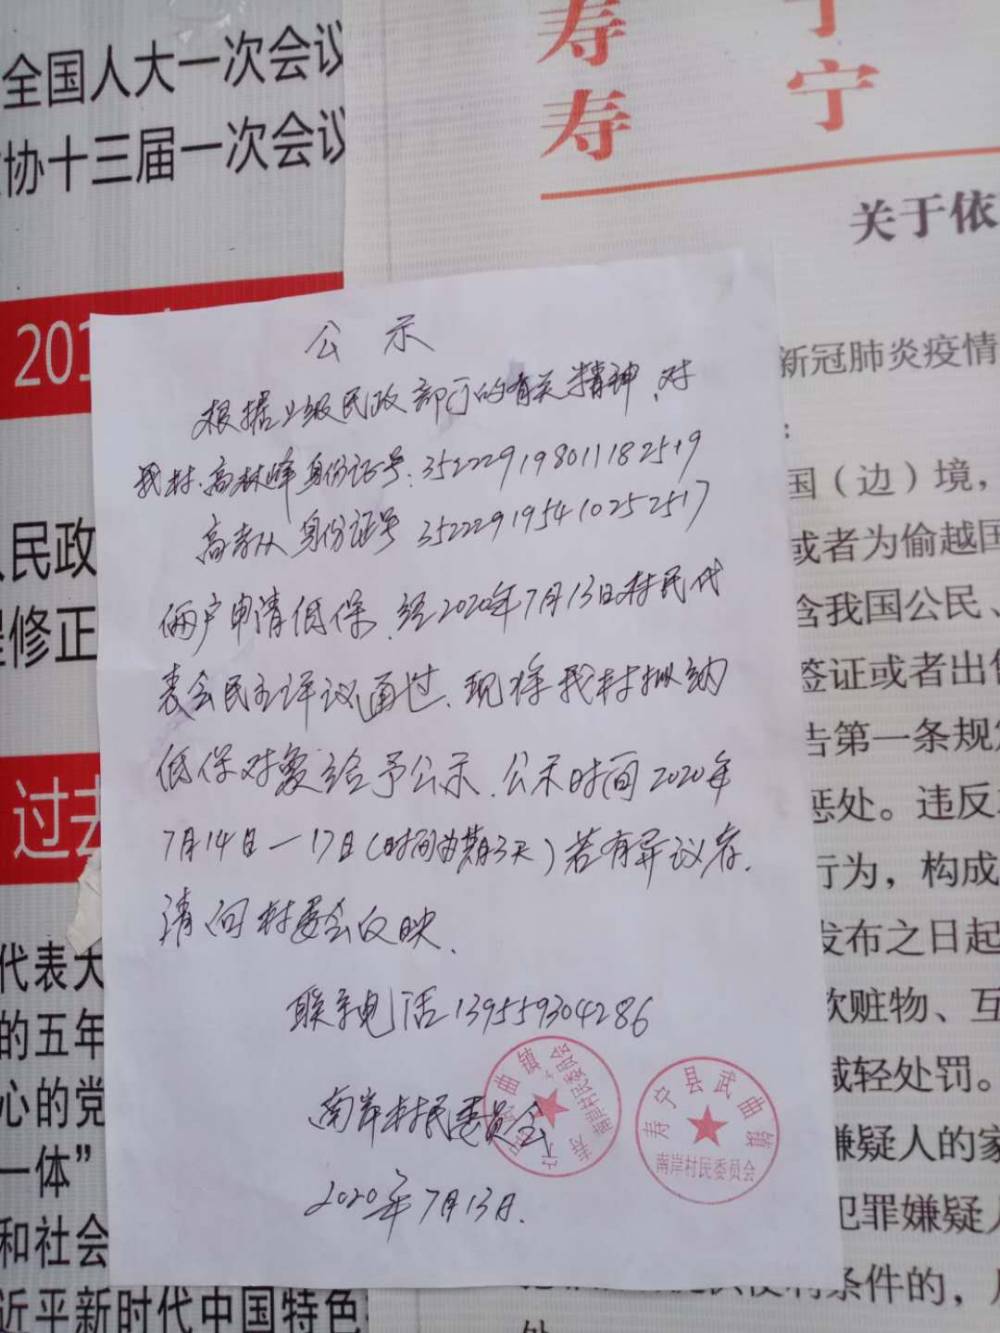 全国人大一次会议
协十三届一次会议
寿 宁
寿 宁
关于依
201
过去
民政
修正
代表大
的五年
心的党
一体”
和社会
近平新时代中国特色
新冠肺炎疫情
国（边）境，
或者为偷越国
含我国公民、
签证或者出售
告第一条规定
惩处。违反
行为，构成
发布之日起
赃物、互
减轻处罚。
嫌疑人的家
犯罪嫌疑人
条件的，
处
公示
根据上级民政部门的有关精神，对
我村，高林峰身份证号：352229198011182519
高孝从 身份证号 352229195410252517
俩户申请低保，经2020年7月13日村民代
表会民主评议通过，现将我村拟纳
低保对象给予公示，公示时间2020年
7月14日一17日（时间为期3天）若有异议者，
请向村委会反映，
联系电话139559304286
南岸村民委员会
2020年7月13日．
寿宁县武曲镇
南岸村民委员会
寿宁县武曲镇
南岸村民委员会